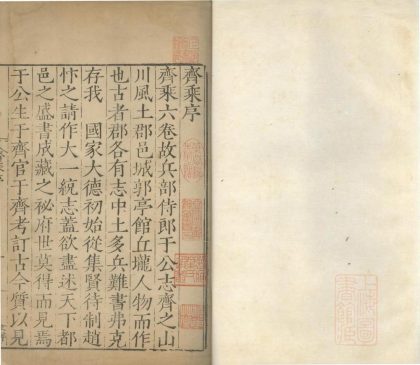 齊乘序
齊乘六卷故兵部侍郎于公志齊之山
川風土郡邑城郭亭館丘壠人物而作
也古者郡各有志中土多兵難書弗克
存我　國家大德初始從集賢待制趙
忭之請作大一統志蓋欲盡述天下都
邑之盛書成藏之秘府世莫得而見焉
于公生于齊官于齊考訂古今質以見
上海圖
書館藏